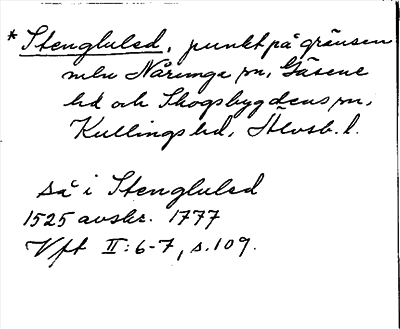 *Stengluled, punkt på gränsen
mln Nårunga sn, Gäsene
hd och Skogsbygdens sn,
Kullings hd, Älvsb. l.
så i Stengluled
1525 avskr. 1777
Vft II: 6-7, s. 109.